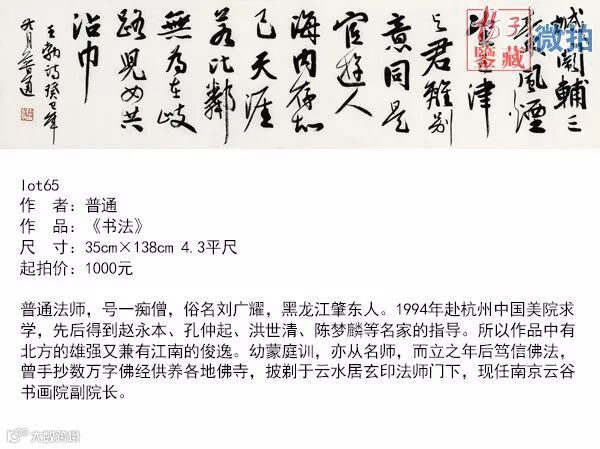 城闕輔三
秦風煙
望五津
与君離別
意同是
宦遊人
海内存知
己天涯
若比鄰
無為在歧
路兒女共
沾巾
王勃诗癸巳年
普通
子
鉴藏
微拍
lot65
作 者：普通
作 品：《书法》
尺 寸：35cm×138cm 4.3平尺
起拍价：1000元
普通法师，号一痴僧，俗名刘广耀，黑龙江肇东人。1994年赴杭州中国美院求
学，先后得到赵永本、孔仲起、洪世清、陈梦麟等名家的指导。所以作品中有
北方的雄强又兼有江南的俊逸。幼蒙庭训，亦从名师，而立之年后笃信佛法，
曾手抄数万字佛经供养各地佛寺，披剃于云水居玄印法师门下，现任南京云谷
书画院副院长。
大威跨境